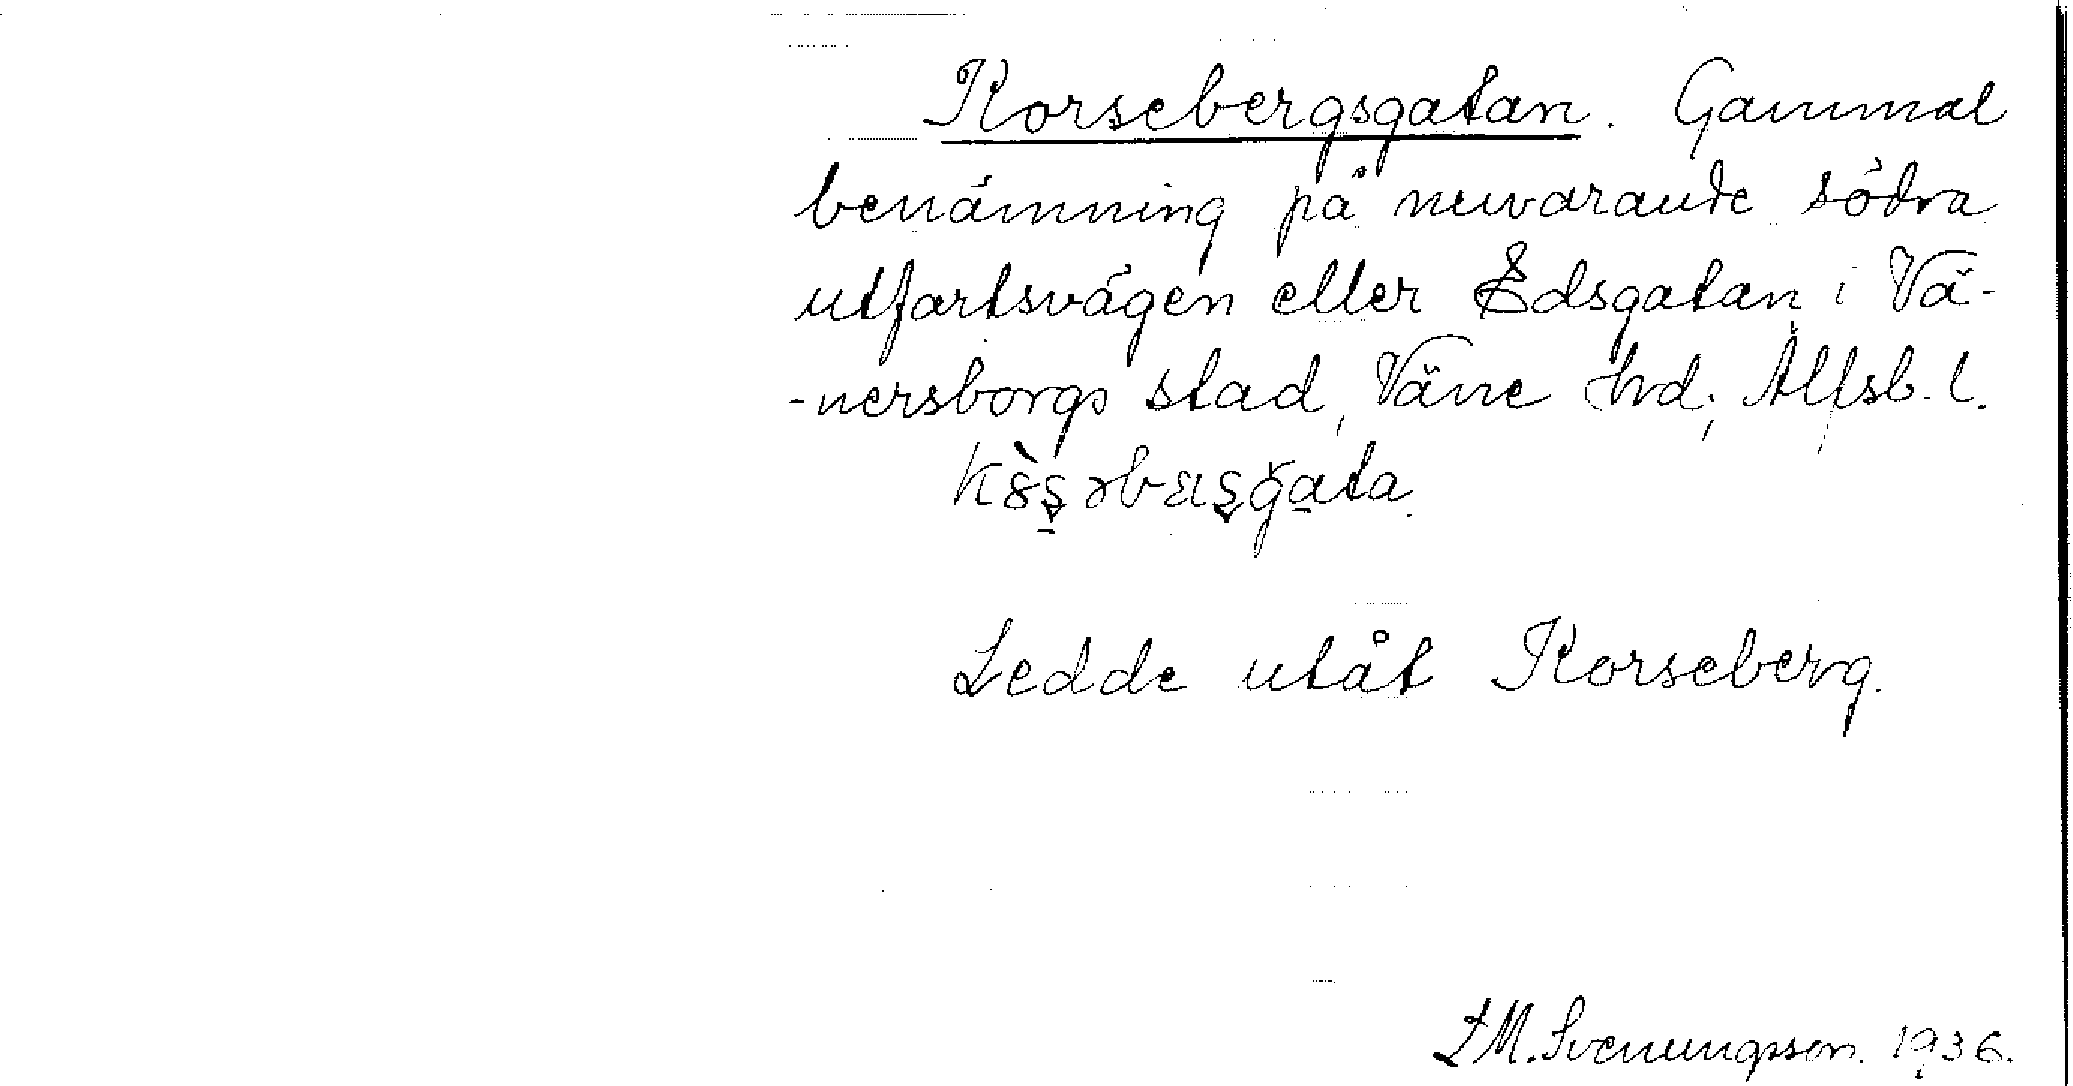 Korsebergsgatan. Gammal
benämning på nuvarande södra
utfartsvägen eller Edsgatan i Vä-
-nersborgs stad, Väne hrd, Älfsb. l.
Ledde utåt Korseberg.
L M. Svenungsson. 1936.